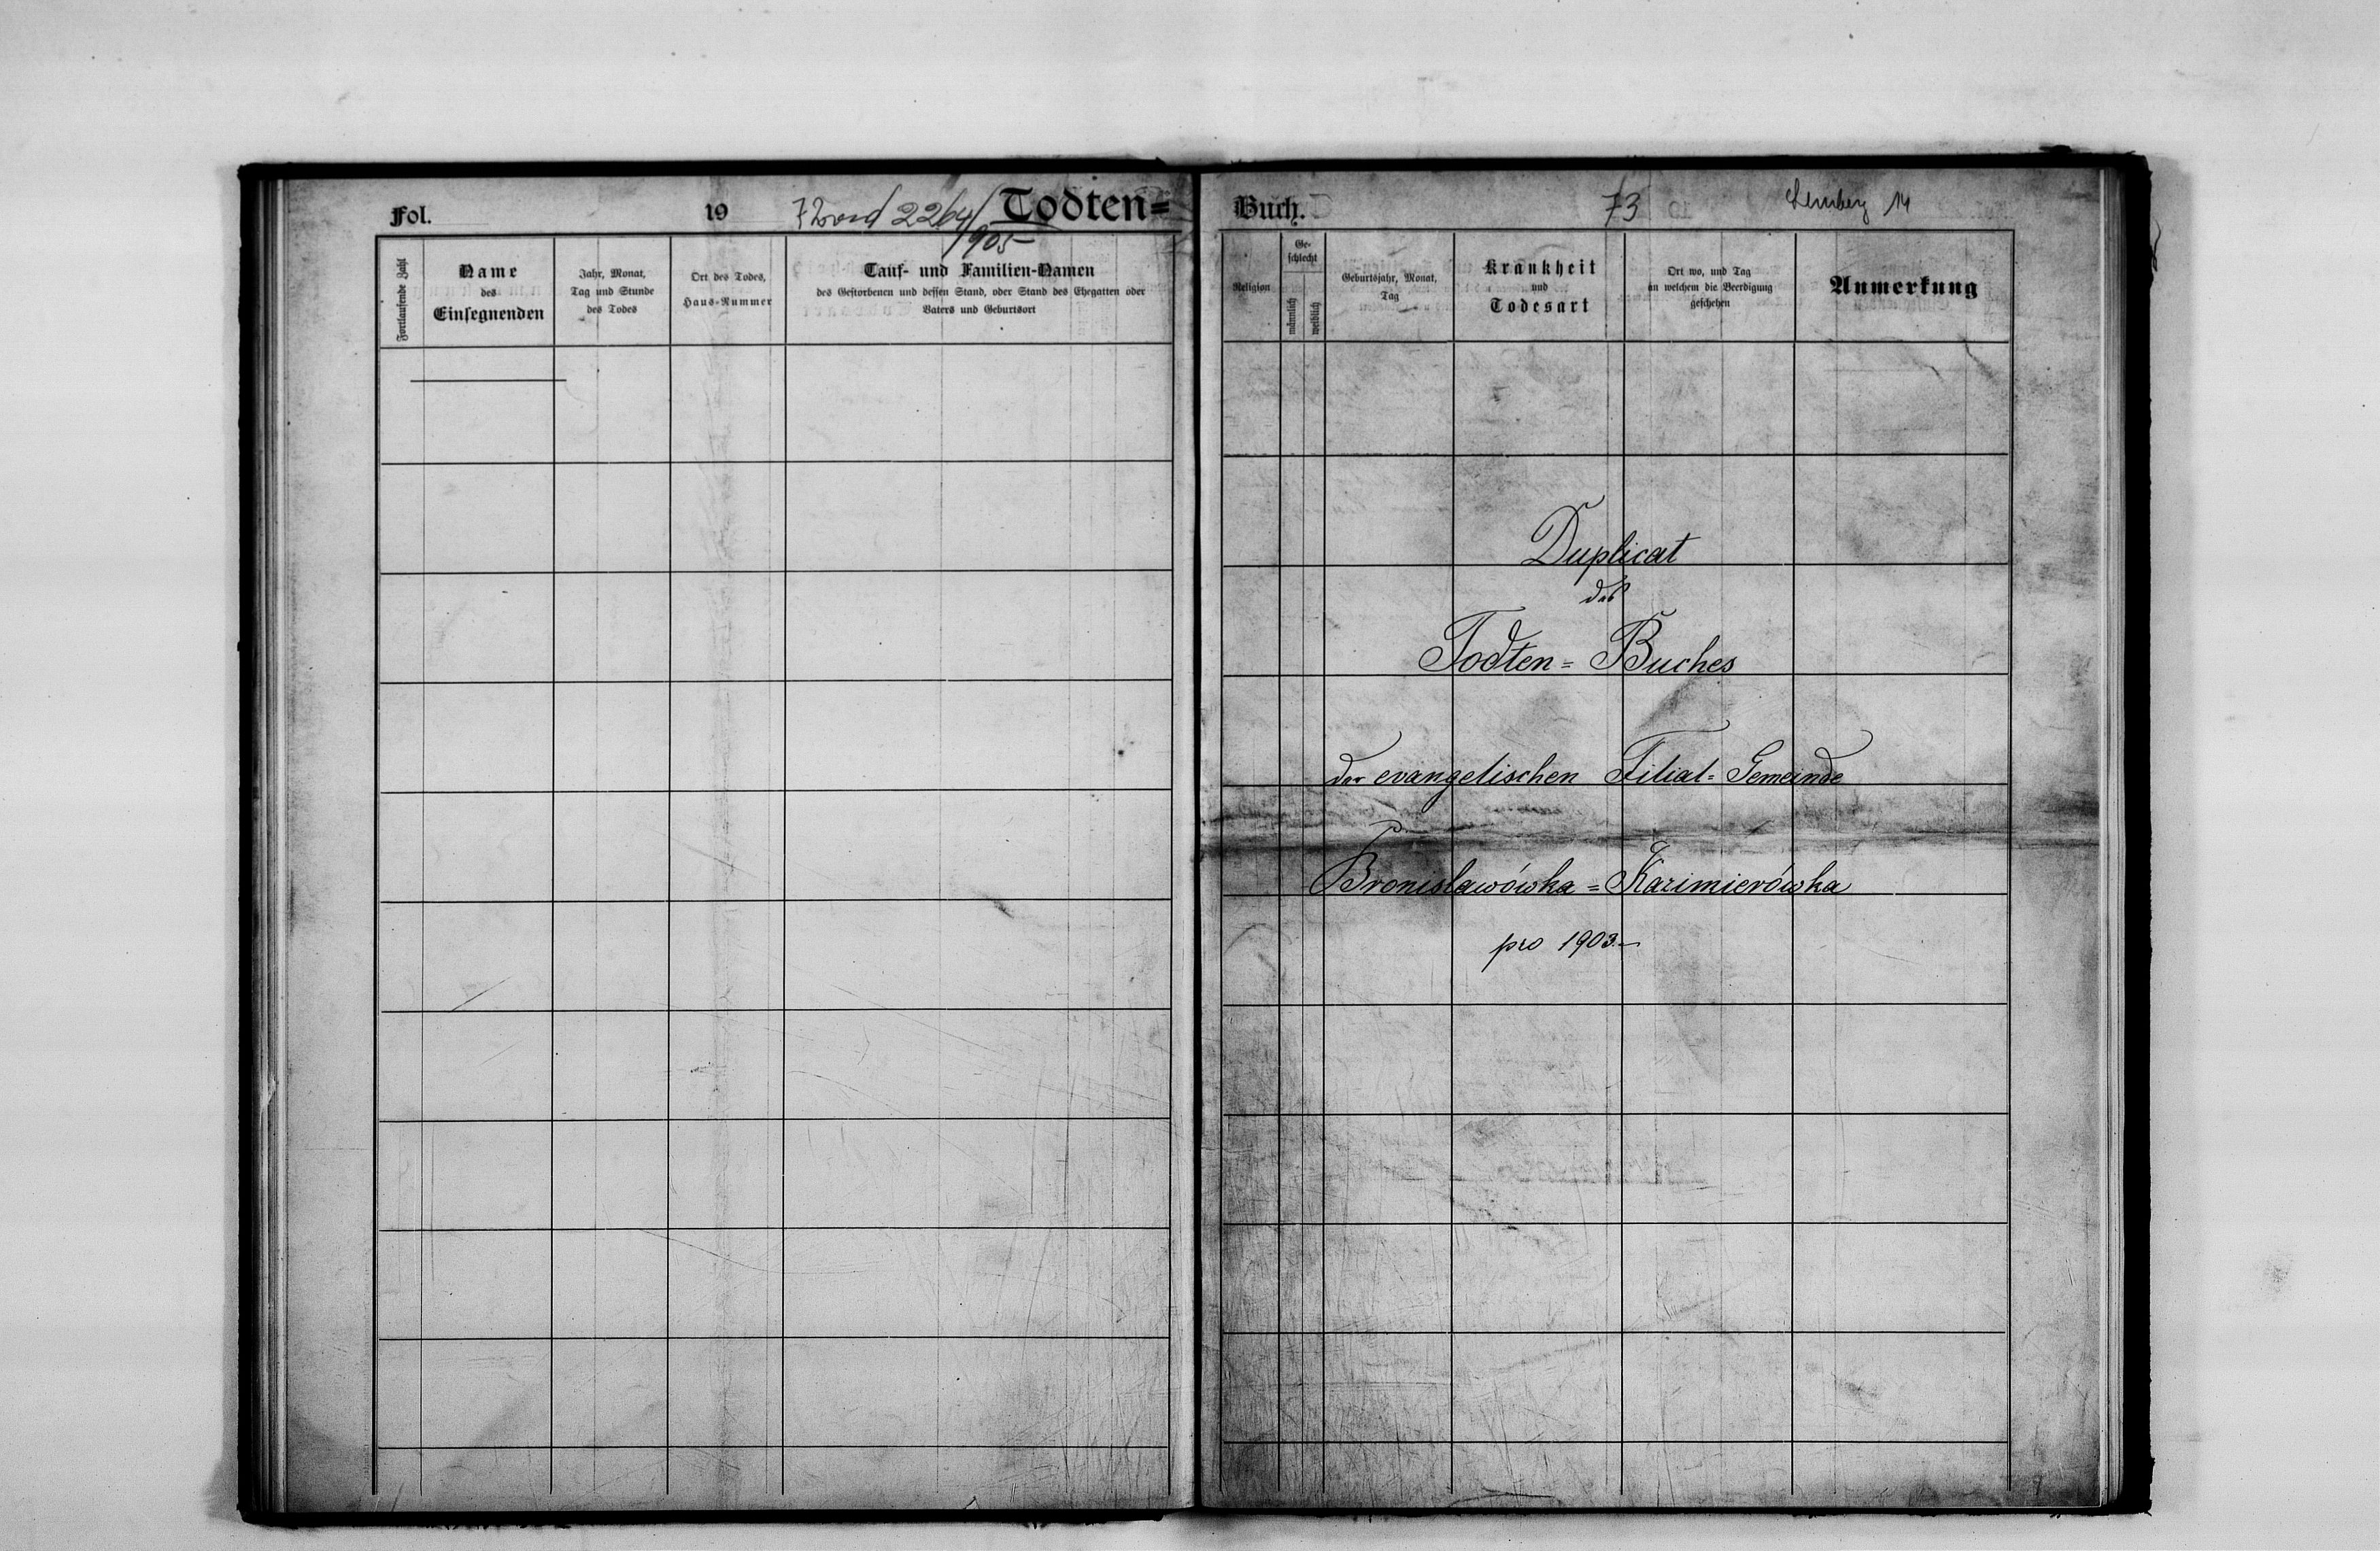 Fol.
19
2264/
1905
Todten=
Fortlaufende Zahl
Name
des
Einsegnenden
Jahr, Monat,
Tag und Stunde
des Todes
Ort des Todes,
Haus-Nummer
Tauf- und Familien-Namen
des Gestorbenen und dessen Stand, oder Stand des Ehegatten oder
Vaters und Geburtsort
Buch.
73
Lemberg 14
Religion
Ge-
schlecht
männlich
weiblich
Geburtsjahr, Monat,
Tag
Krankheit
und
Todesart
Ort wo, und Tag
an welchem die Beerdigung
geschehen
Anmerkung
Duplicat
des
Todten= Buches
der evangelischen Filial= Gemeinde
Bronisławówka = Kazimierówka
pro 1903.–